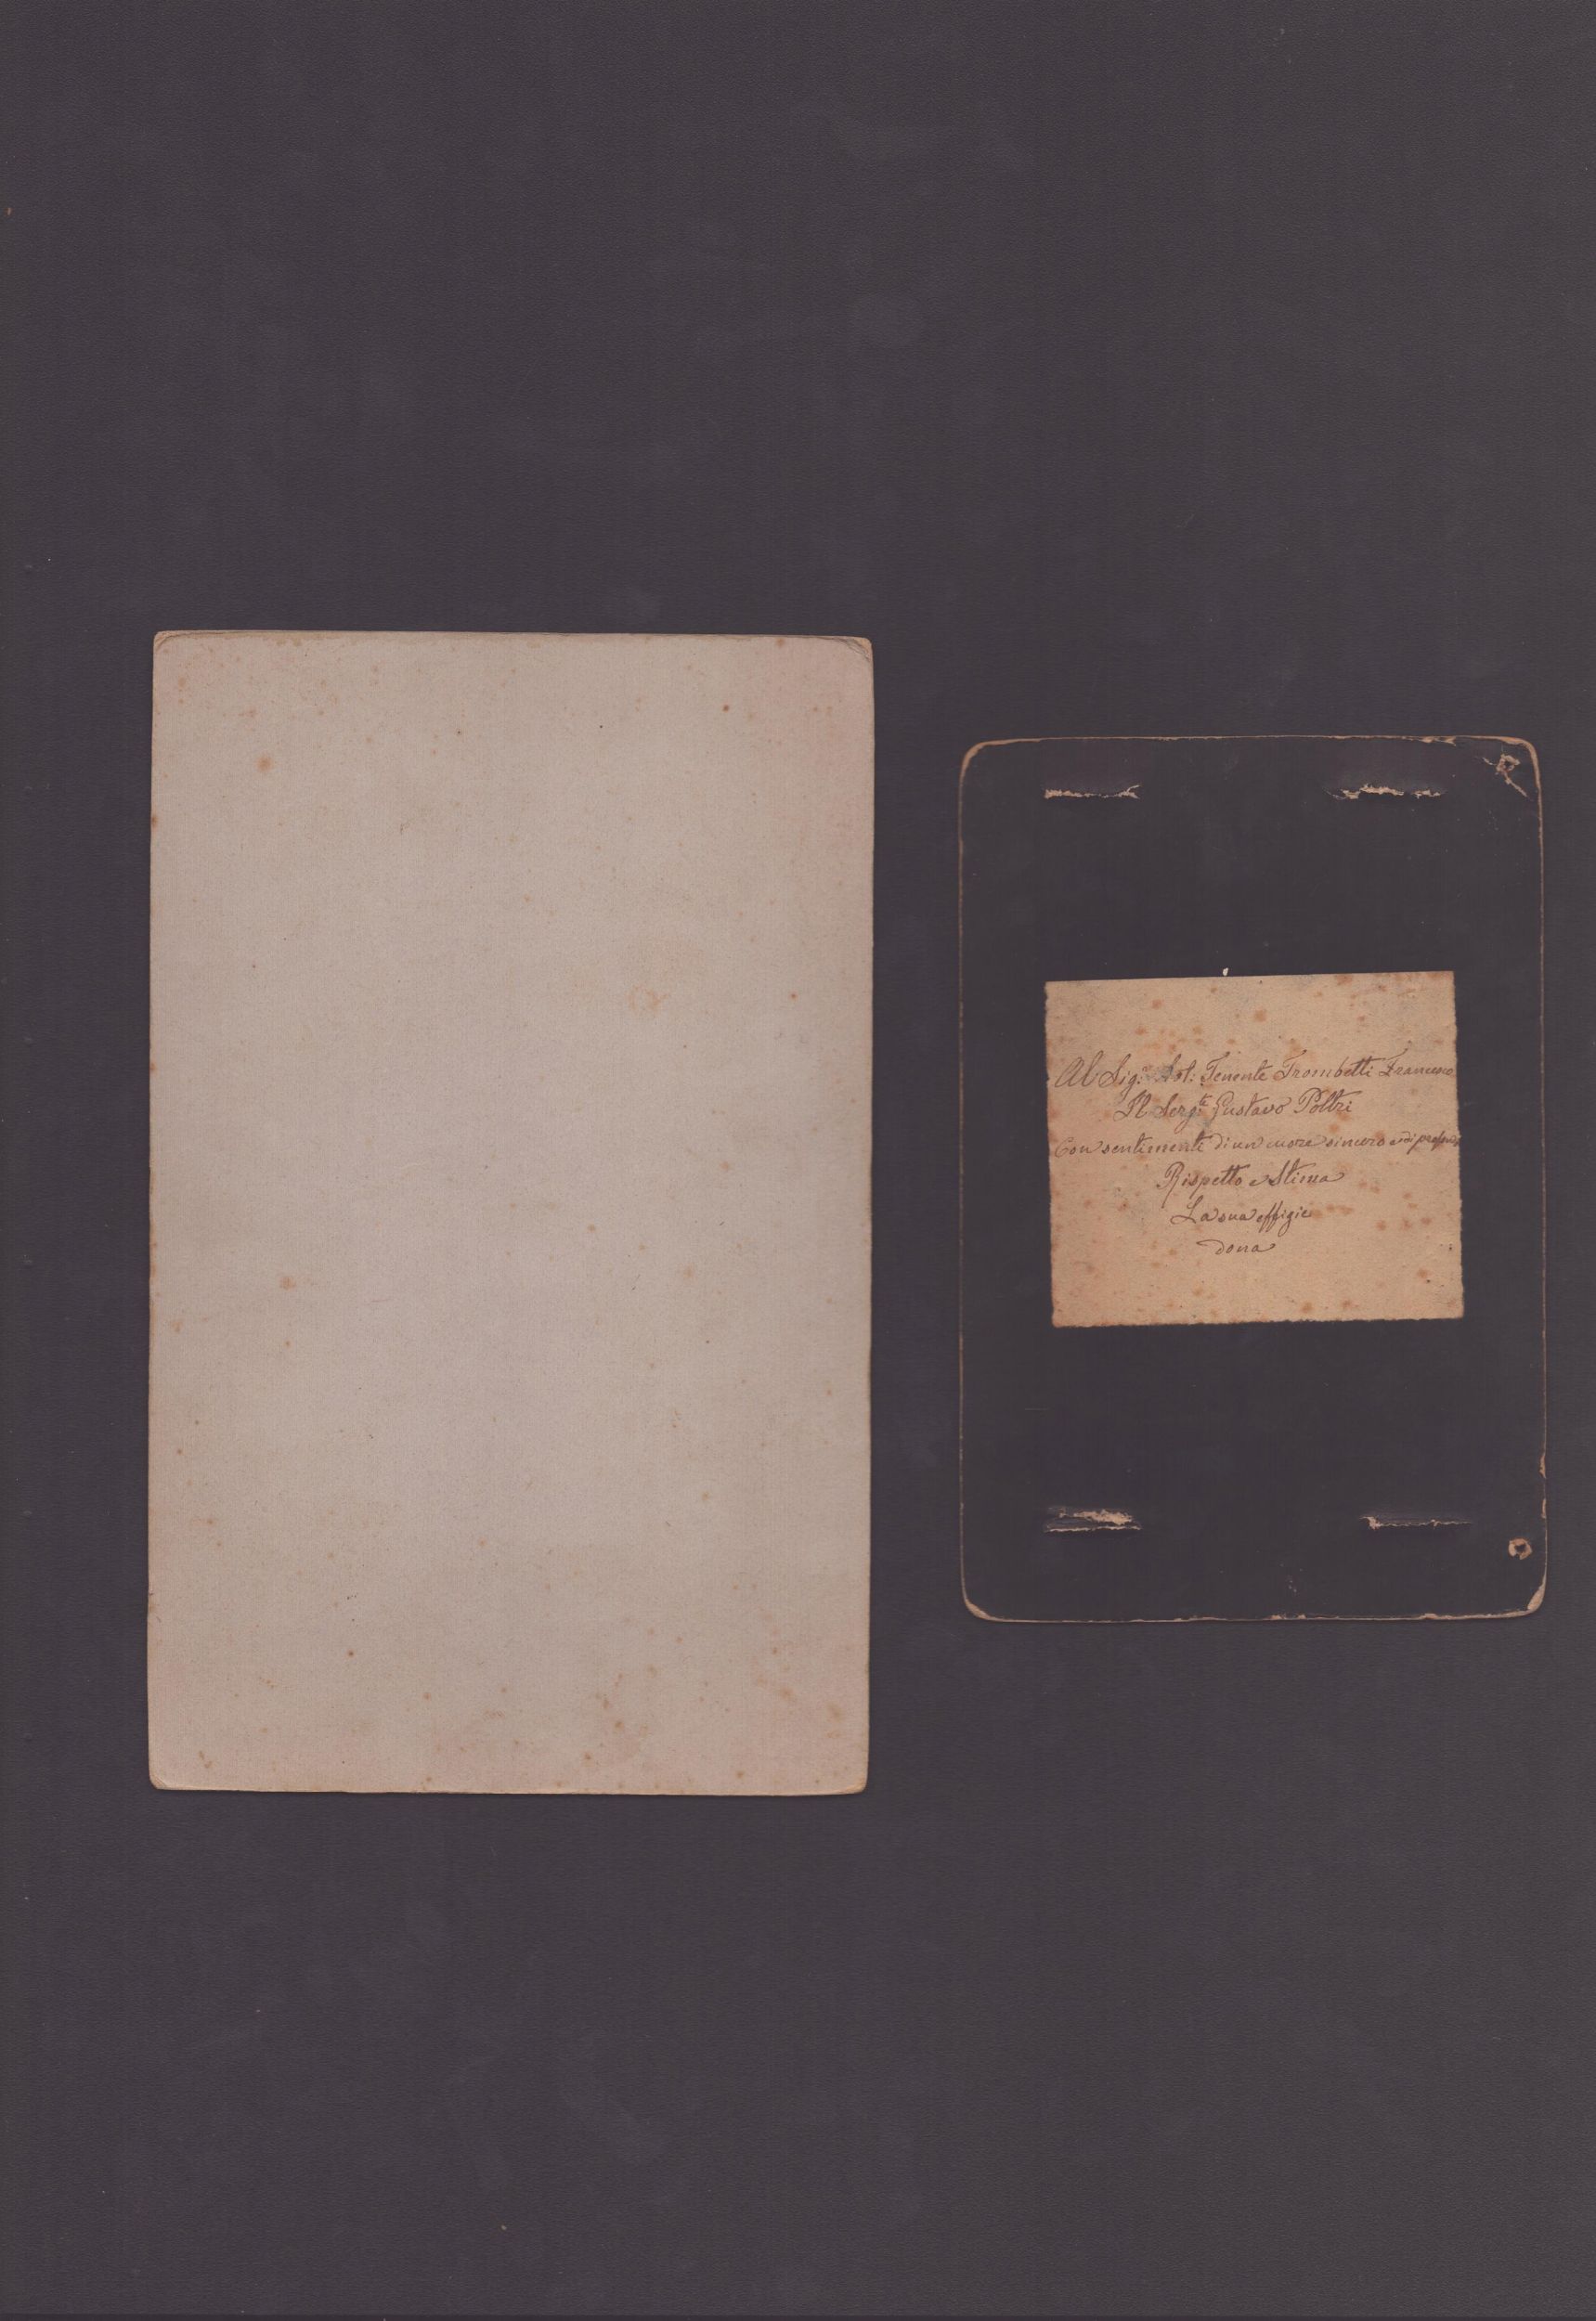 Al Sig.r Sot: Tenente Trombetti Francesco
Il Serg.te Gustavo Poltri
Con sentimenti di un cuore sincero e di profondo
Rispetto e Stima
La sua effigie
dona